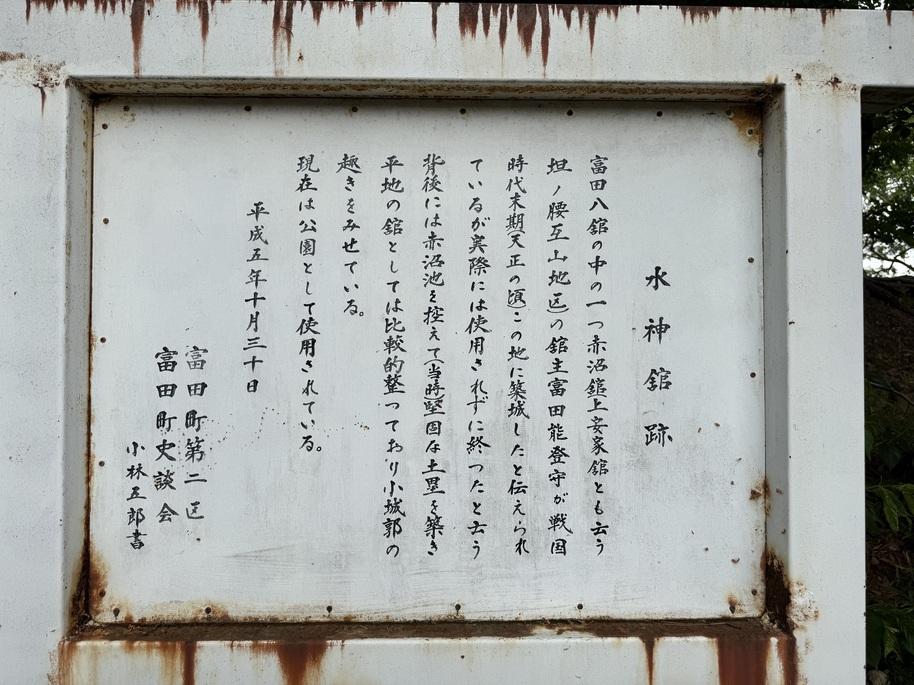 水神舘跡
富田八舘の中の一つ赤沼舘上安家舘とも云う
坦ノ腰互山地区)の舘主富田能登守が戦国
時代末期(天正の頃)この地に築城したと伝えられ
ているが実際には使用されずに終つたと云う
背後には赤沼池を控えて(当時)堅固な土塁を築き
平地の舘としては比較的整つており小城郭の
趣きをみせている。
現在は公園として使用されている。
平成五年十月三十日
富田町第二区
富田町史談会
小林五郎書